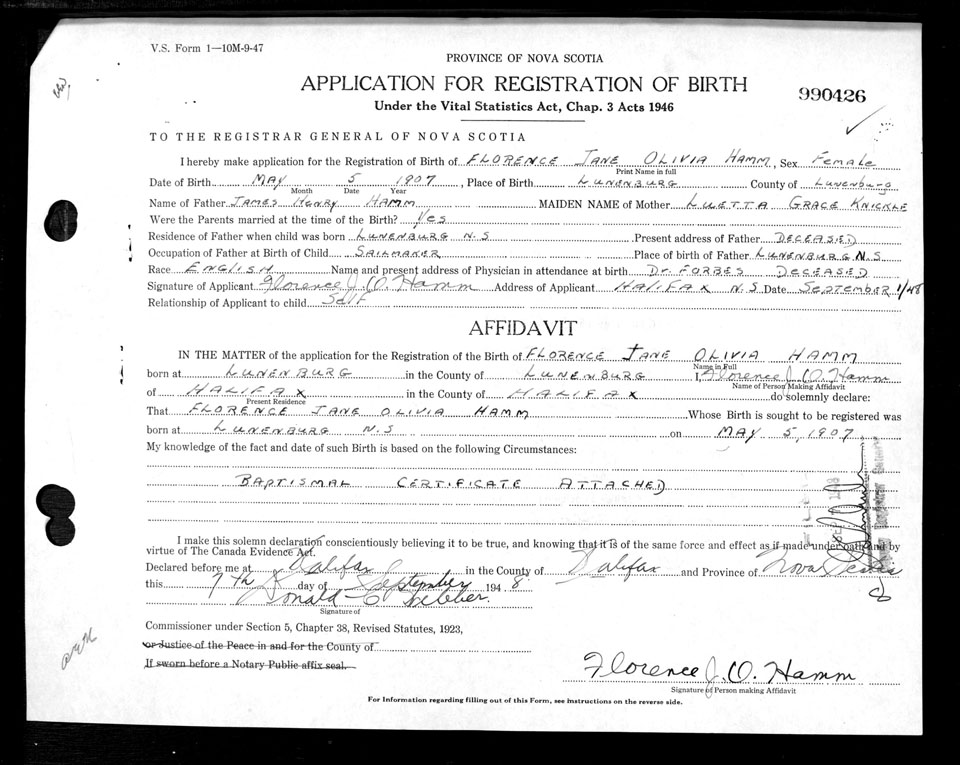 V.S. Form 1—10M-9-47
PROVINCE OF NOVA SCOTIA
APPLICATION FOR REGISTRATION OF BIRTH
990426
Under the Vital Statistics Act, Chap. 3 Acts 1946
TO THE REGISTRAR GENERAL OF NOVA SCOTIA
I hereby make application for the Registration of Birth of FLORENCE JANE OLIVIA HAMM, Sex Female
Print Name in full
Date of Birth MAY 5 1907, Place of Birth LUNENBURG County of Lunenburg
Month Date Year
Name of Father JAMES HENRY HAMM MAIDEN NAME of Mother LUETTA GRACE KNICKLE
Were the Parents married at the time of the Birth? Yes
Residence of Father when child was born LUNENBURG N.S Present address of Father DECEASED
Occupation of Father at Birth of Child SAILMAKER Place of birth of Father LUNENBURG N.S
Race ENGLISH Name and present address of Physician in attendance at birth Dr. FORBES DECEASED
Signature of Applicant Florence J. O. Hamm Address of Applicant HALIFAX N.S Date SEPTEMBER 1/48
Relationship of Applicant to child Self
AFFIDAVIT
IN THE MATTER of the application for the Registration of the Birth of FLORENCE JANE OLIVIA HAMM
Name in Full
born at LUNENBURG in the County of LUNENBURG I, Florence J. O. Hamm
Name of Person Making Affidavit
of HALIFAX in the County of HALIFAX do solemnly declare:
Present Residence
That FLORENCE JANE OLIVIA HAMM Whose Birth is sought to be registered was
born at LUNENBURG N.S on MAY 5, 1907
My knowledge of the fact and date of such Birth is based on the following Circumstances:
BAPTISMAL CERTIFICATE ATTACHED
I make this solemn declaration conscientiously believing it to be true, and knowing that it is of the same force and effect as if made under oath and by
virtue of The Canada Evidence Act.
Declared before me at Halifax in the County of Halifax and Province of Nova Scotia
this 7th day of September 1948.
Donald C
Signature of
Commissioner under Section 5, Chapter 38, Revised Statutes, 1923,
or Justice of the Peace in and for the County of
If sworn before a Notary Public affix seal.
Florence J. O. Hamm
Signature of Person making Affidavit
For Information regarding filling out of this Form, see instructions on the reverse side.